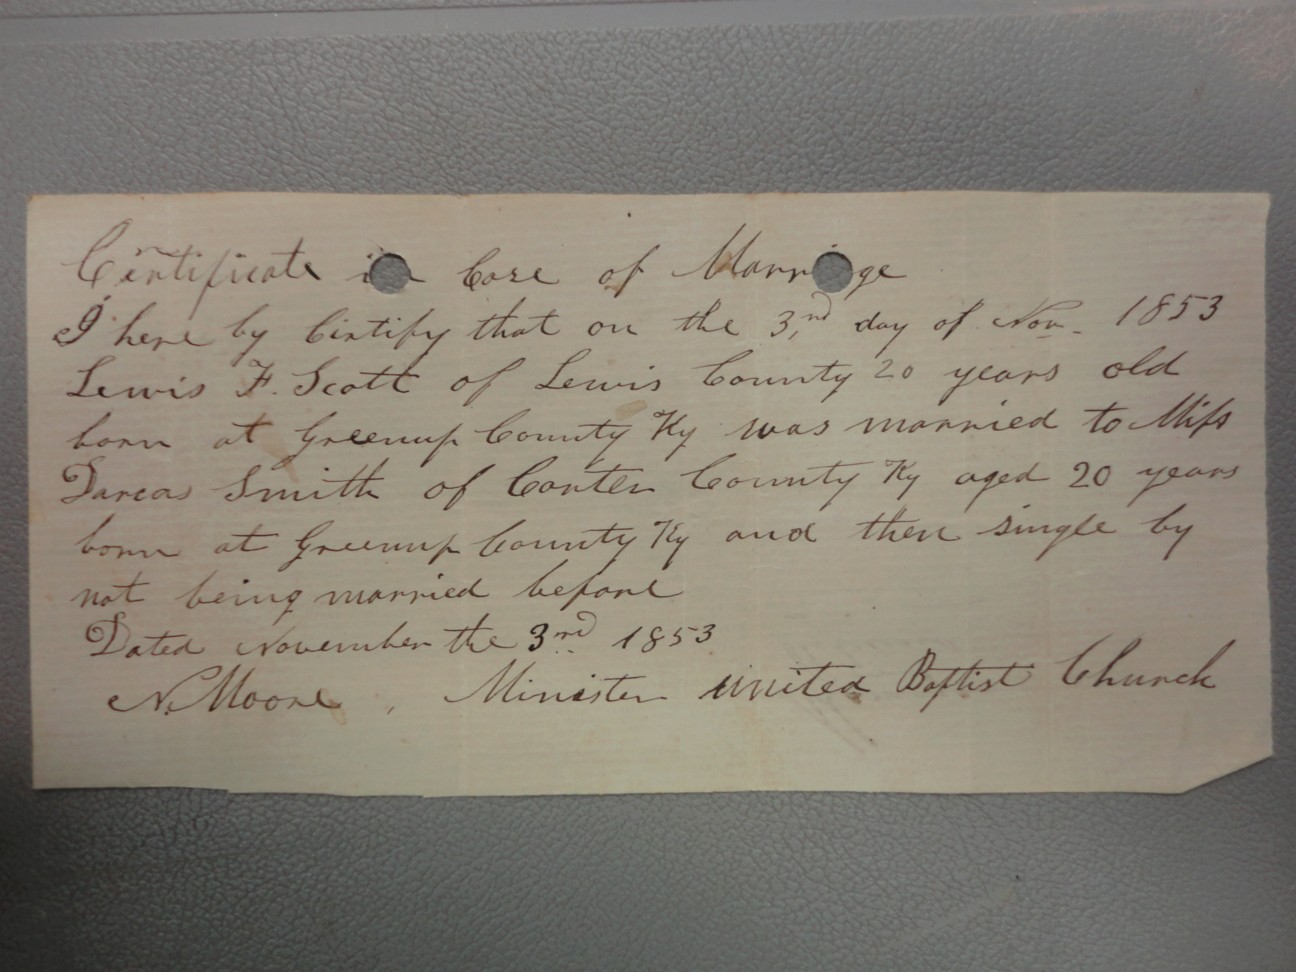 Certificate in Case of Marriage
I here by Certify that on the 3,nd day of Nov. 1853
Lewis F. Scott of Lewis County 20 years old
born at Greenup County Ky was married to Miss
Darcas Smith of Carter County Ky aged 20 years
born at Greenup County Ky and then single by
not being married before
Dated November the 3rd 1853
N. Moore , Minister united Baptist Church